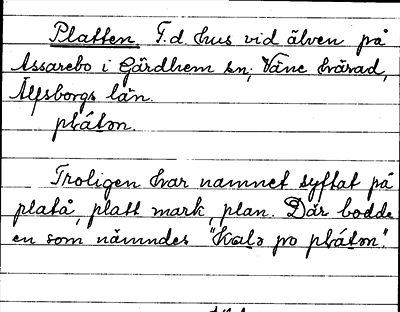 Platten F.d. hus vid älven på
Assarebo i Gärdhem sn; Väne härad,
Älfsborgs län.
plátən.
Troligen har namnet syftat på
platå, platt mark, plan. Där bodde
en som nämndes "Kalə po plátən".